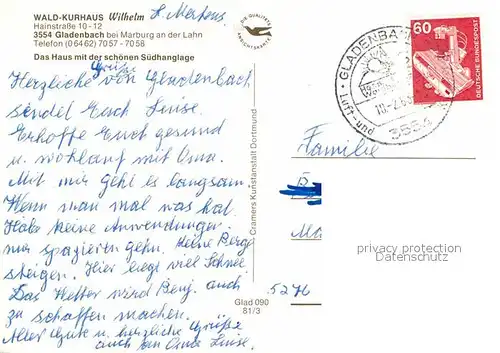 L. Mertens
WALD-KURHAUS Wilhelm
Hainstraße 10-12
3554 Gladenbach bei Marburg an der Lahn
Telefon (06462) 7057 - 7058
Das Haus mit der schönen Südhanglage
DIE QUALITÄTS
ANSICHTSKARTE
Grüße
Herzliche von Gladenbach
sendet Euch Luise.
Erhoffe Euch gesund
u. wohlauf mit Oma.
Mit mir geht es langsam.
Wenn man mal was hat.
Habe keine Anwendungen.
nur spazieren gehn. keine Berge
steigen. Hier liegt viel Schnee
Das Wetter wird Benj. auch
zu schaffen machen.
Alles Gute u. herzliche Grüße
auch an Oma Luise.
Cramers Kunstanstalt Dortmund
Glad 090
81/3
GLADENBA
Luft- und
3554
60
DEUTSCHE BUNDESPOST
Familie
5276
privacy protection
Datenschutz